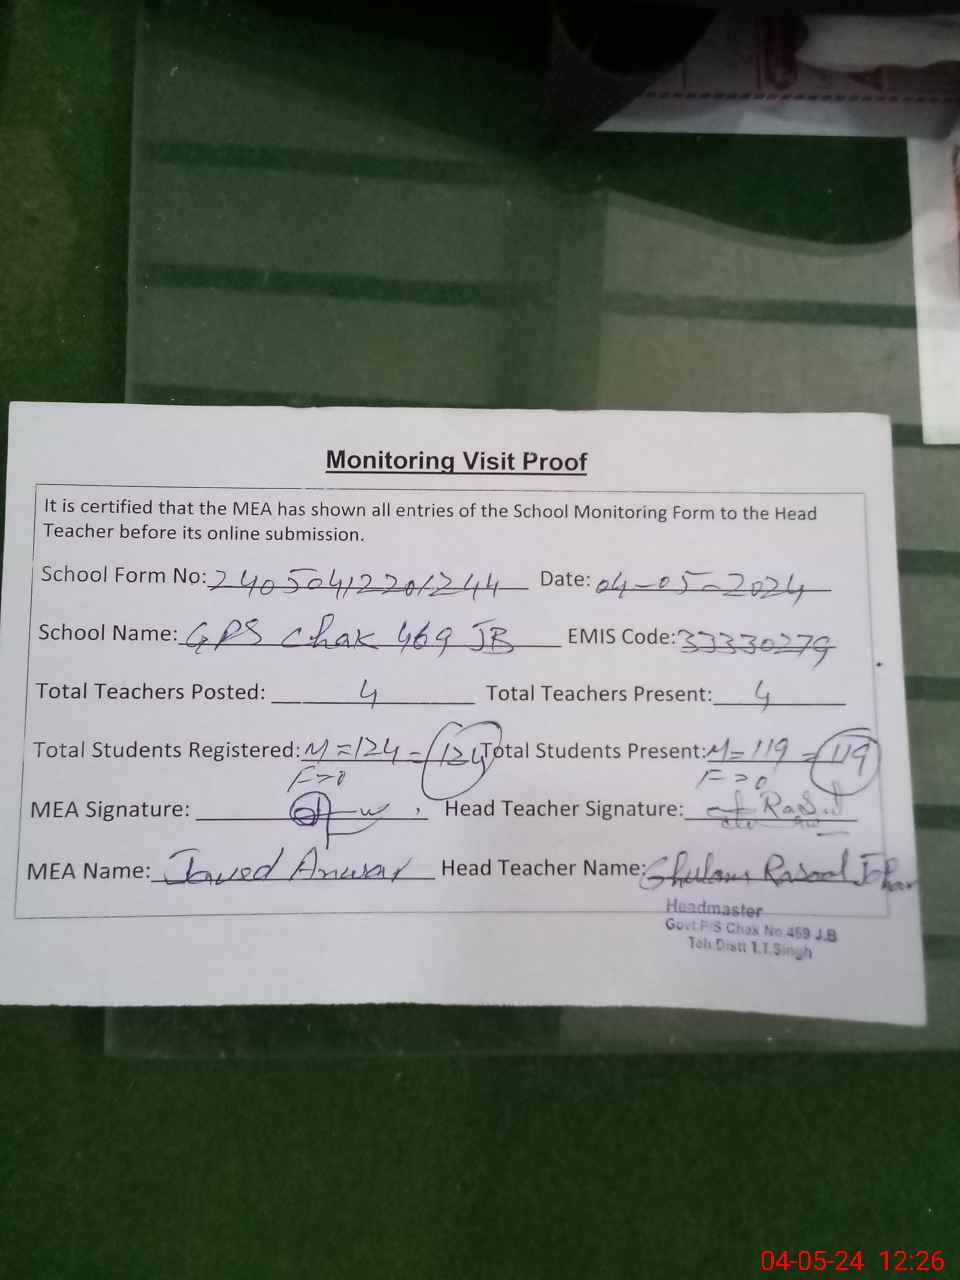 Monitoring Visit Proof
It is certified that the MEA has shown all entries of the School Monitoring Form to the Head
Teacher before its online submission.
School Form No: 24050412201244 Date: 04-05-2024
School Name: GPS Chak 469 JB EMIS Code: 33330279
Total Teachers Posted: 4 Total Teachers Present: 4
Total Students Registered: M=124 = 124 Total Students Present: M=119 = 119
F=>0 F=>0
MEA Signature: Head Teacher Signature:
MEA Name: Javed Anwar Head Teacher Name: Ghulam Rasool
Headmaster
Govt.P/S Chak No.469 J.B
Teh.Distt T.T.Singh
04-05-24 12:26